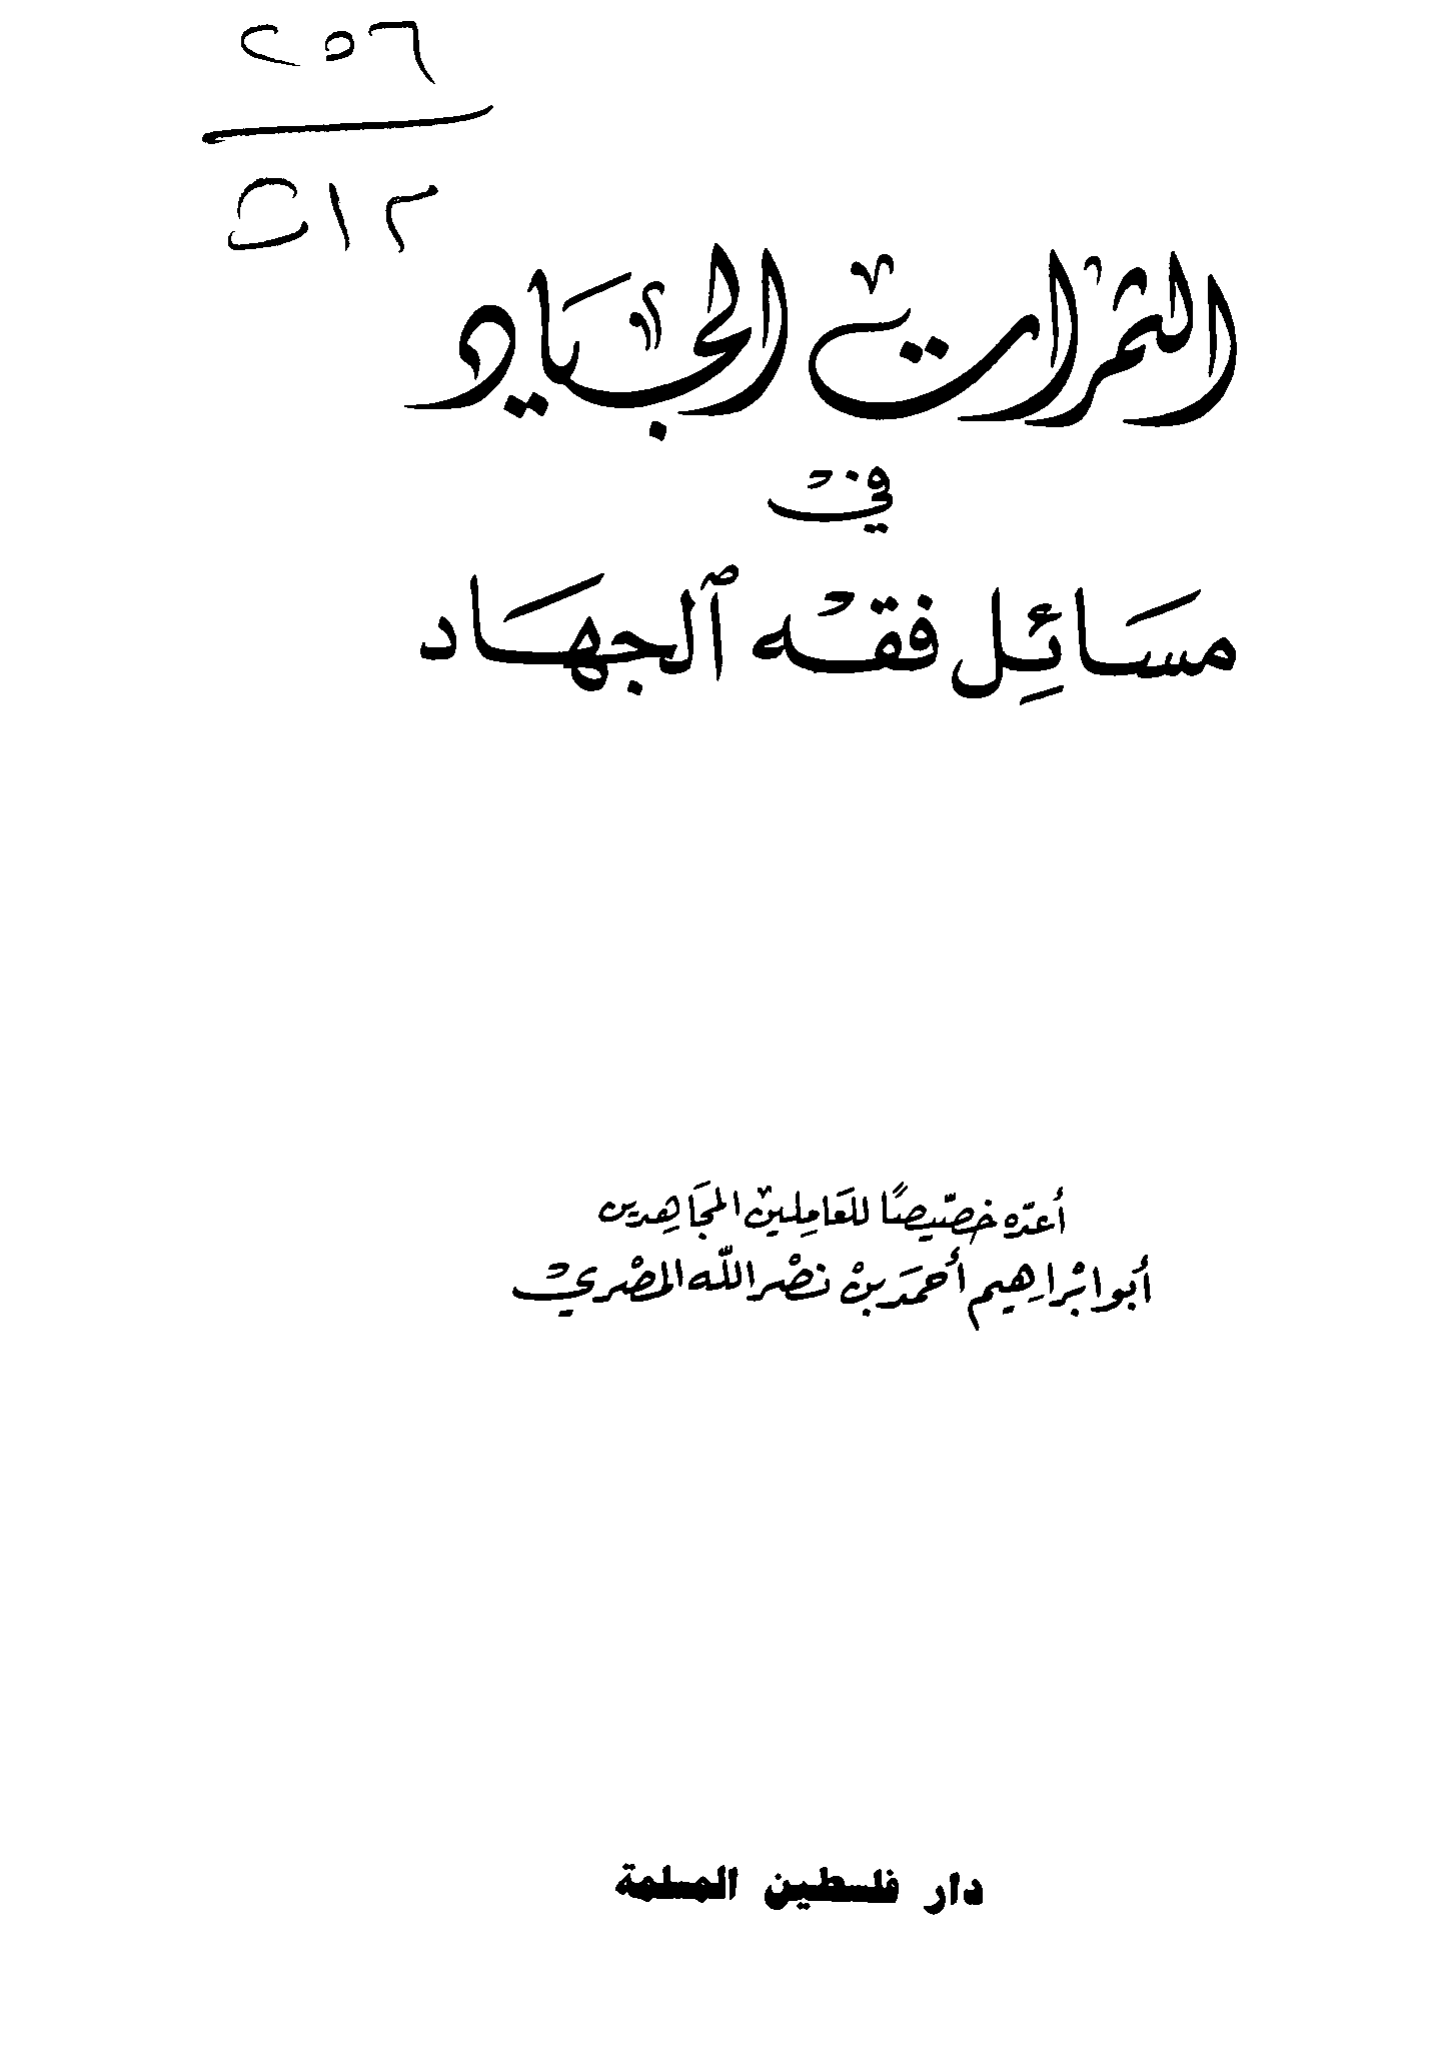 ٢٥٦
الثمرات الجياد
في
مسائل فقه الجهاد
أعدّه خصّيصًا للعاملين المجاهدين
أبو ابراهيم أحمد بن نصر الله المصري
دار فلسطين المسلمة